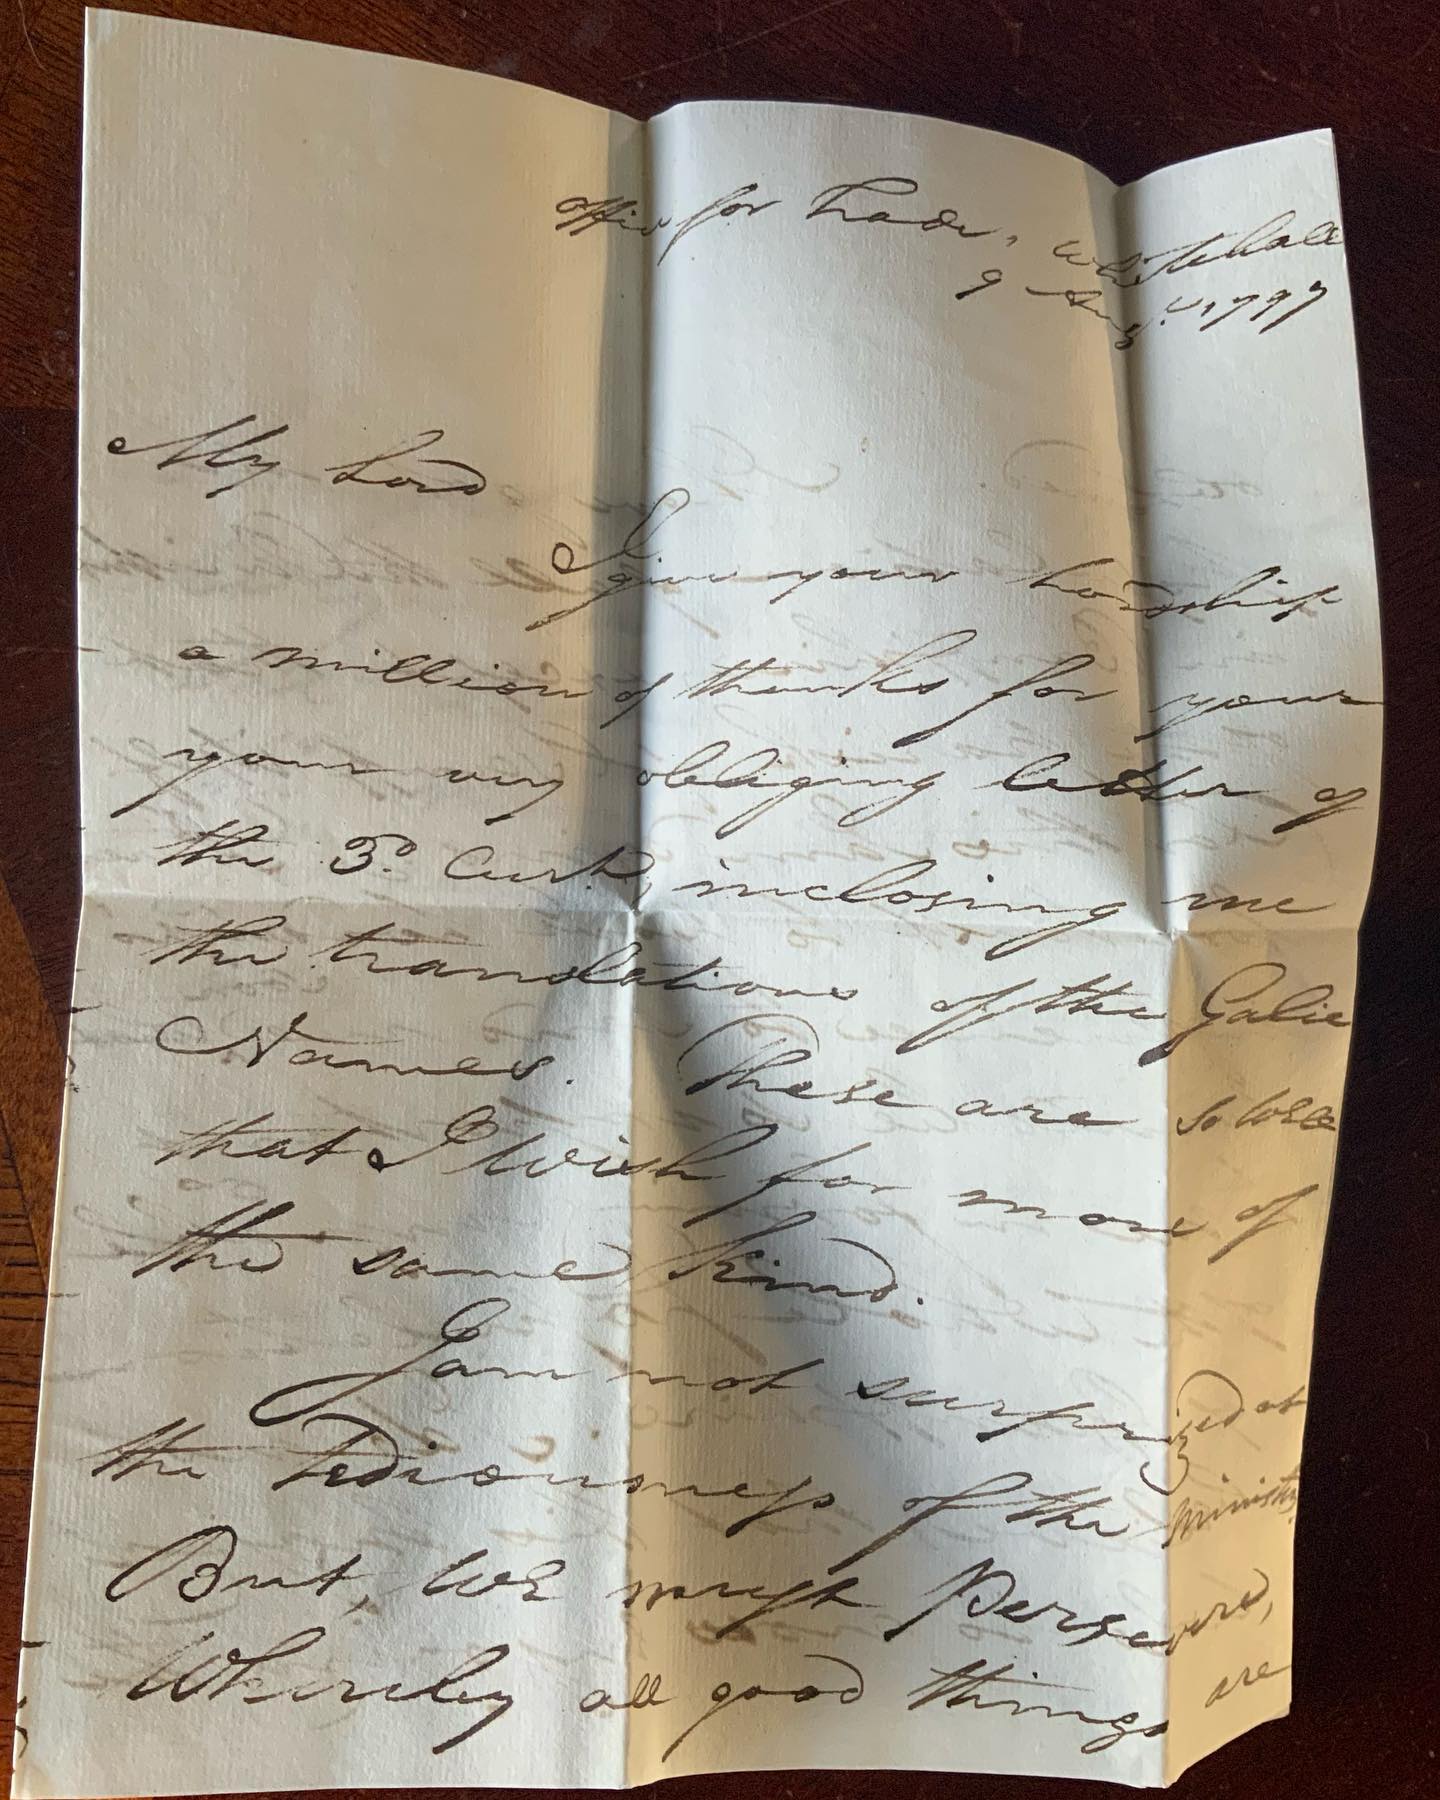 Office for Trade, Whitehall
9 Augt. 1797
My Lord
I give your Lordship
a million of thanks for your
your very obliging letter of
the 3d. Curt., inclosing me
the translations of the Galic
Names. These are so well
that I wish for more of
the same kind.
I am not surprized at
the Tediousness of the Ministry.
But, we must Persevere,
Whereby all good things are